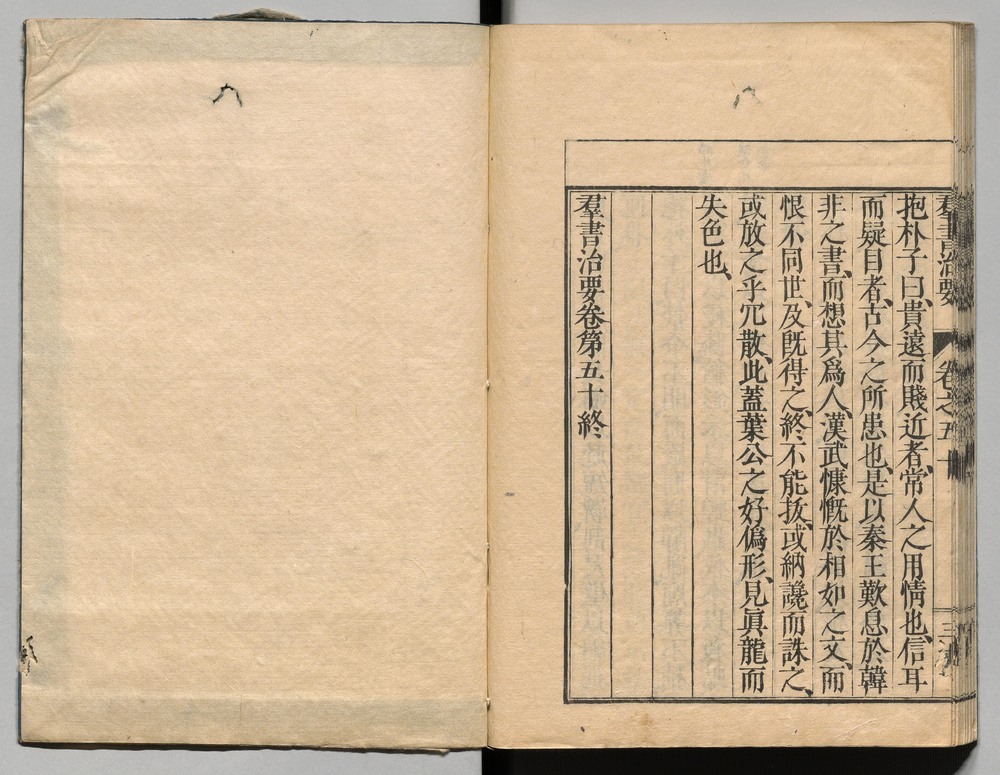 羣書治要 卷之五十
抱朴子曰、貴遠而賤近者、常人之用情也、信耳
而疑目者、古今之所患也、是以秦王歎息於韓
非之書、而想其爲人、漢武慷慨於相如之文、而
恨不同世、及旣得之、終不能拔、或納讒而誅之、
或放之乎冗散、此蓋葉公之好僞形、見眞龍而
失色也、
羣書治要卷第五十終